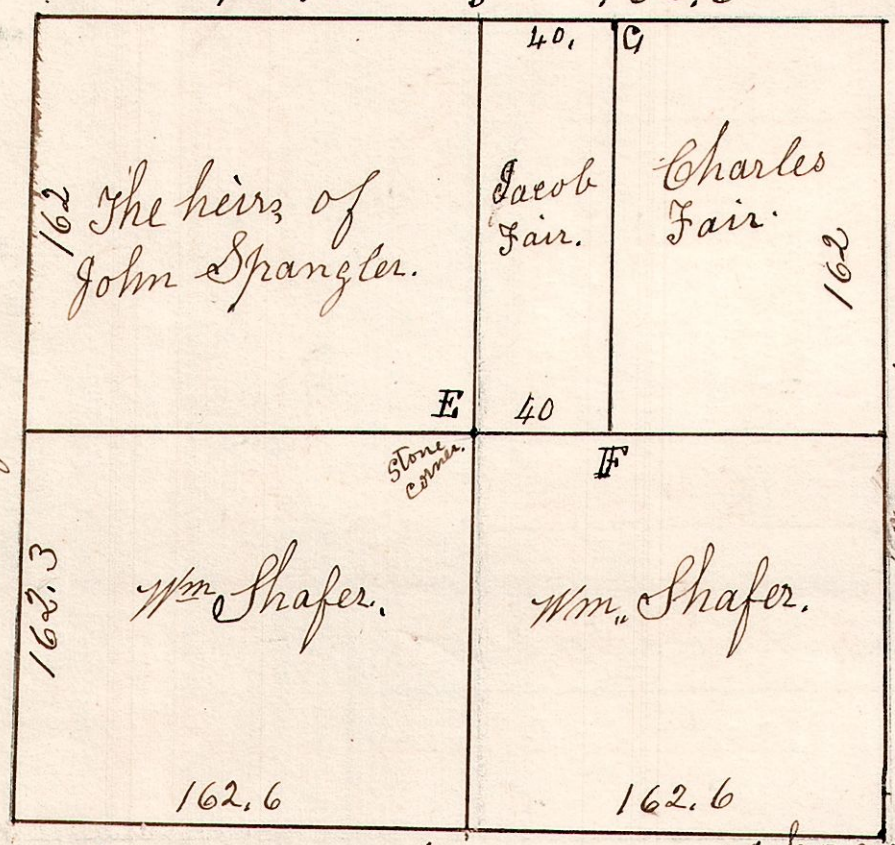 40.
G
162
The heirs of
John Spangler.
Jacob
Fair.
Charles
Fair.
162
E
40
Stone
corner.
F
162.3
Wm Shafer.
Wm. Shafer.
162.6
162.6